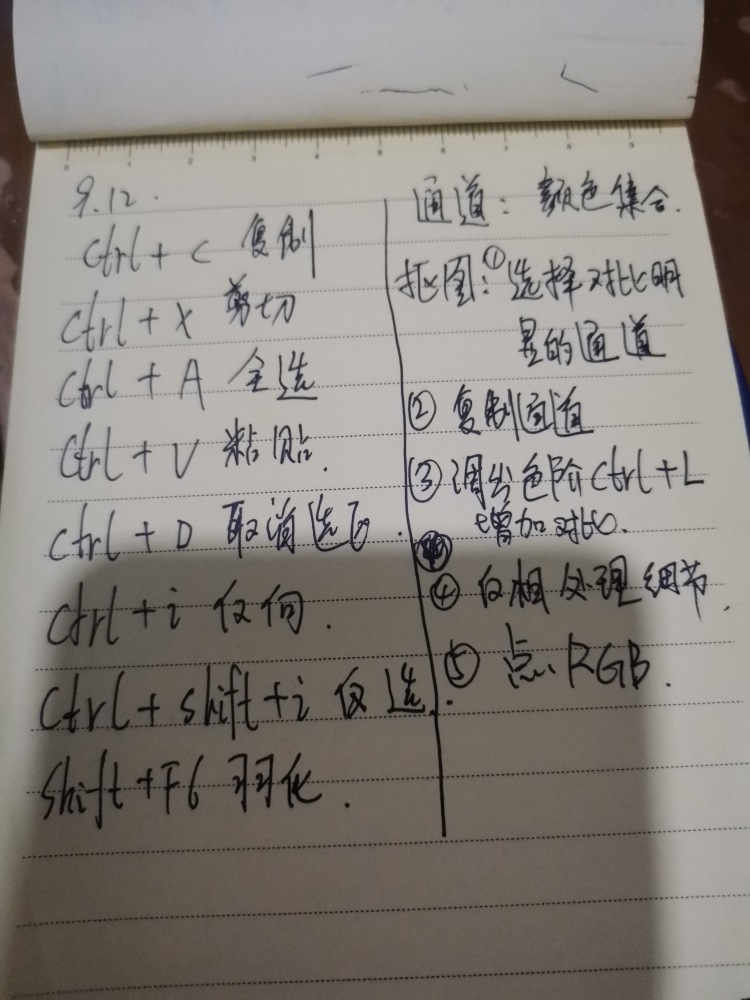 9.12.
Ctrl + C 复制
Ctrl + X 剪切
Ctrl + A 全选
Ctrl + V 粘贴.
Ctrl + D 取消选区.
Ctrl + i 反向.
Ctrl + shift + i 反选.
Shift + F6 羽化.
通道: 颜色集合.
抠图: ① 选择对比明
显的通道
② 复制通道
③ 调出色阶 Ctrl + L
增加对比.
④ 反相处理细节.
⑤ 点 RGB.